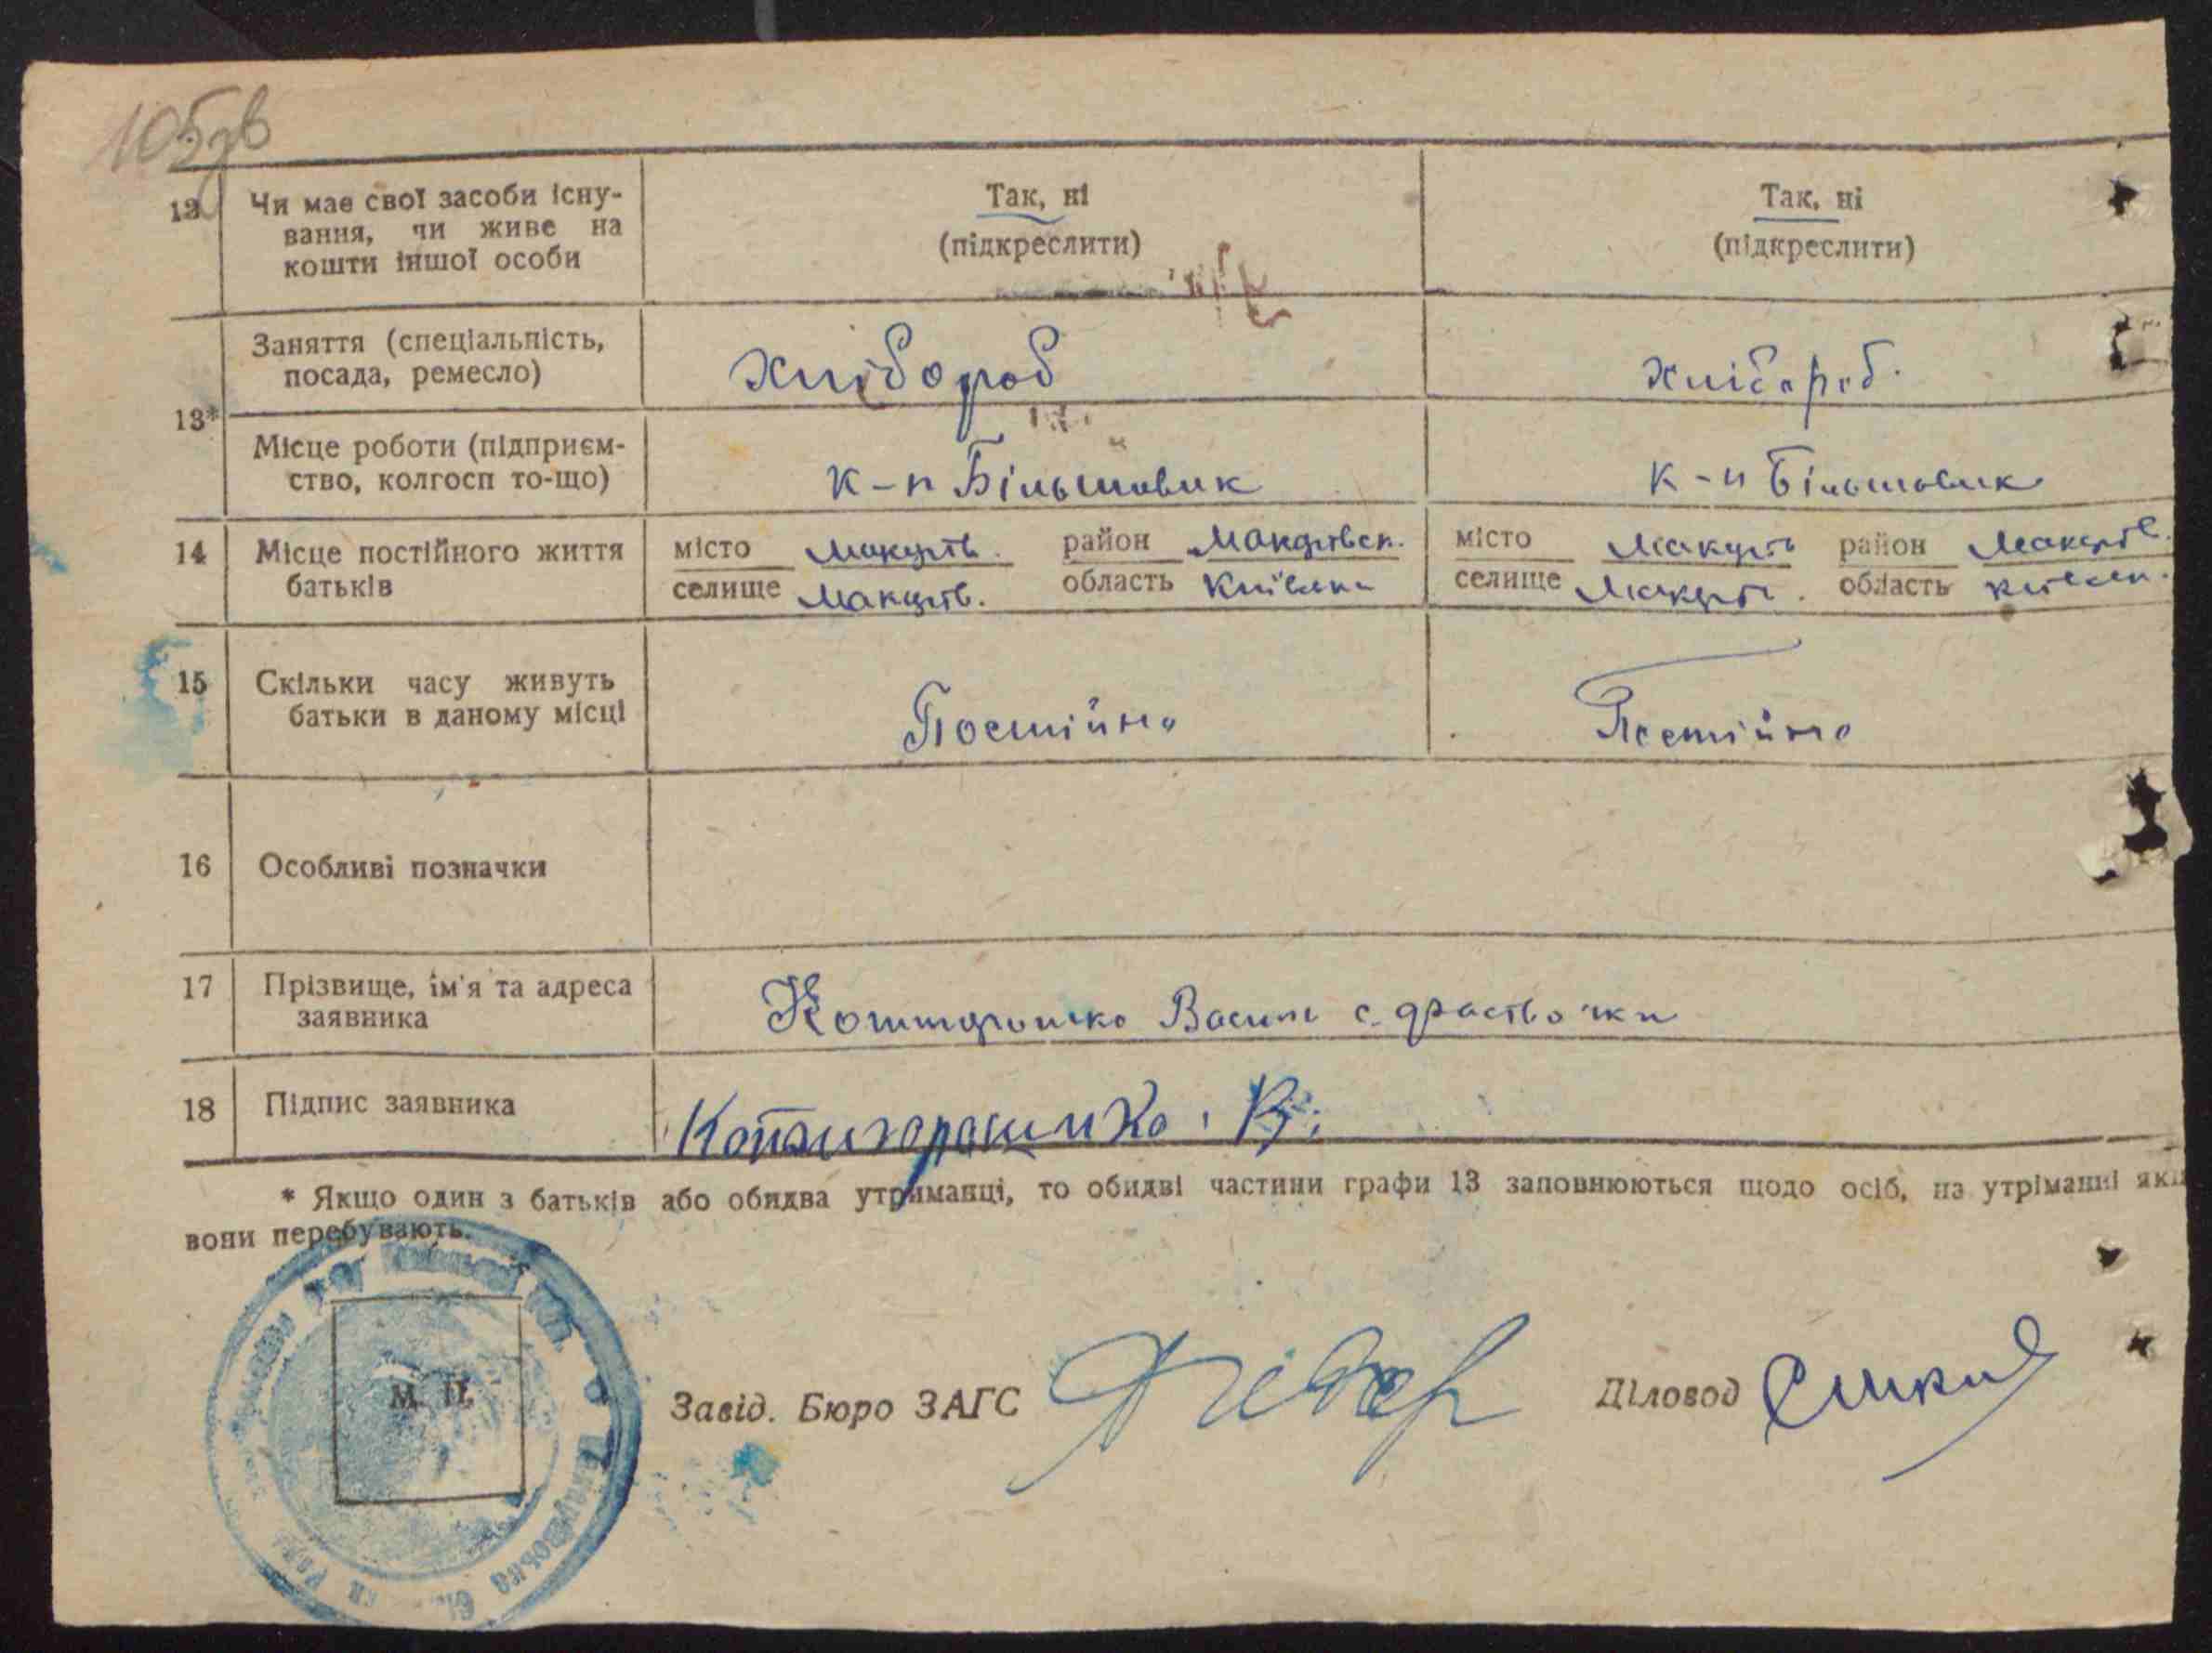 105зв
12 Чи має свої засоби існу-
вання, чи живе на
кошти іншої особи
Так, ні
(підкреслити)
Так, ні
(підкреслити)
13*
Заняття (спеціальність,
посада, ремесло)
хлібороб
хлібороб.
Місце роботи (підприєм-
ство, колгосп то-що)
к-п Більшовик
к-п Більшовик
14 Місце постійного життя
батьків
місто Макарів. район Макарівск.
селище Макарів. область Київська
місто Макарів район Макарів.
селище Макарів. область Київськ.
15 Скільки часу живуть
батьки в даному місці
Постійно
Постійно
16 Особливі позначки
17 Прізвище, ім'я та адреса
заявника
Василь с.
18 Підпис заявника
В.
* Якщо один з батьків або обидва утриманці, то обидві частини графи 13 заповнюються щодо осіб, на утріманні яки
вони перебувають.
М. П.
Завід. Бюро ЗАГС
Діловод